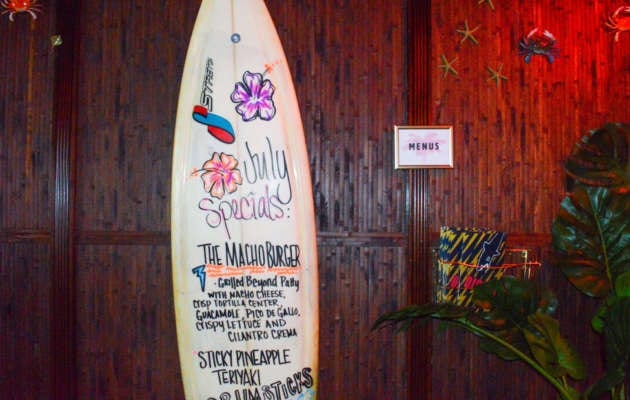 STRETCH
July
Specials:
THE MACHO BURGER
· Grilled Beyond Patty
WITH NACHO CHEESE,
CRISP TORTILLA CENTER,
GUACAMOLE, PICO DE GALLO,
CRISPY LETTUCE AND
CILANTRO CREMA
STICKY PINEAPPLE
TERIYAKI
DRUMSTICKS
MENUS